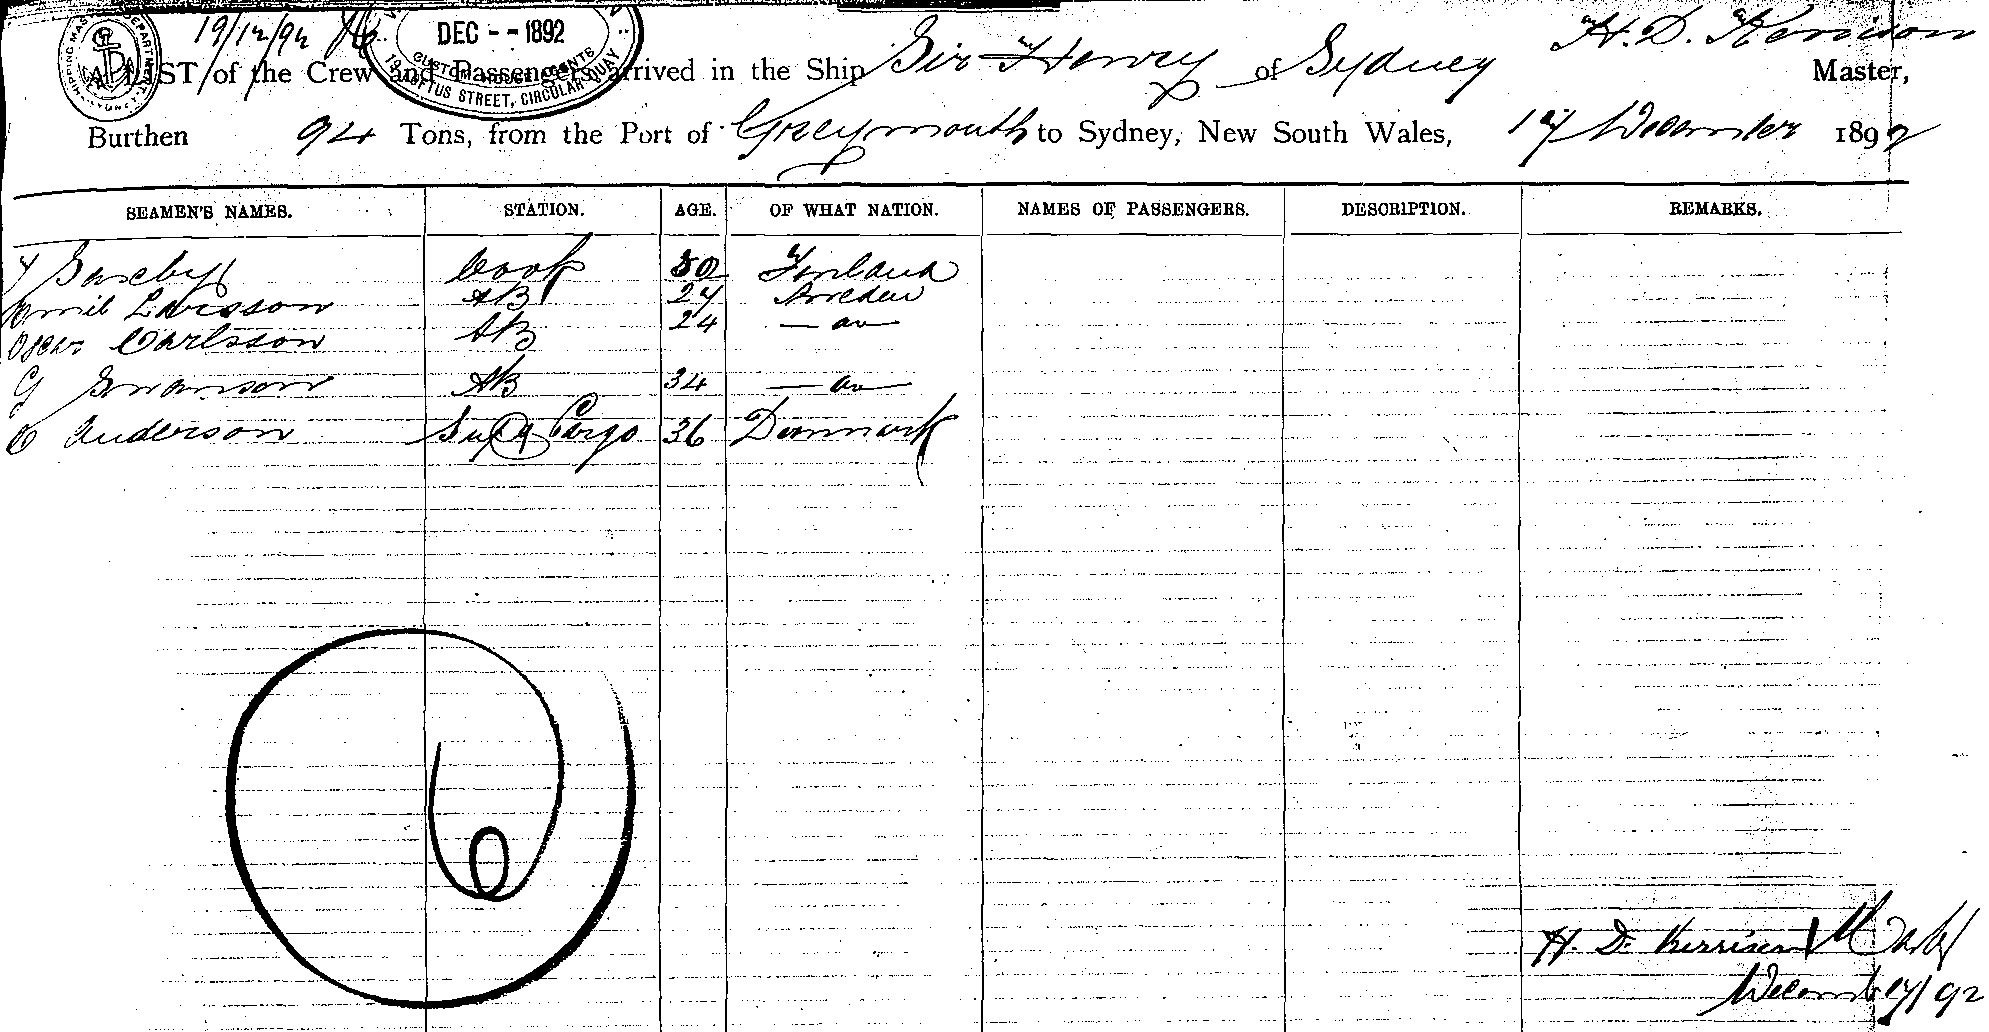 19/12/92
DEC - - 1892
CUSTOM HOUSE AGENTS
19 LOFTUS STREET, CIRCULAR QUAY
H. D. Kerrison
LIST of the Crew and Passengers arrived in the Ship Sir Henry of Sydney Master,
Burthen 94 Tons, from the Port of Greymouth to Sydney, New South Wales, 17 December 1892
SEAMEN'S NAMES. STATION. AGE. OF WHAT NATION. NAMES OF PASSENGERS. DESCRIPTION. REMARKS.
Cook 50 Finland
Emil Larsson AB 24 Sweden
Oscar Carlsson AB 24 — do —
G Swanson AB 34 — do —
O Anderson Sup Cargo 36 Denmark
H. D. Kerrison Master
Decemb 17/92